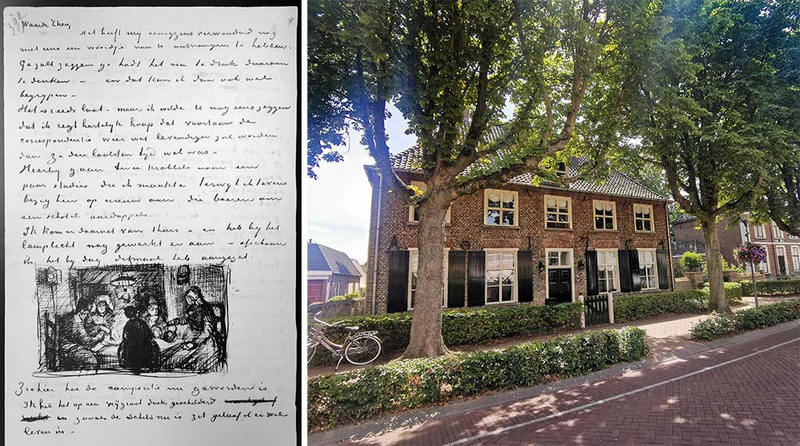 Waarde Theo,
het heeft mij eenigzins verwonderd nog
niet eens een woordje van U ontvangen te hebben.
Ge zult zeggen ge hadt het nu te druk daaraan
te denken – en dat kan ik dan ook wel
begrijpen –
Het is reeds laat – maar ik wilde U nog eens zeggen
dat ik regt hartelijk hoop dat voortaan de
correspondentie weer wat levendiger zal worden
dan ze den laatsten tijd wel was –
Hierbij gaan twee krabbels naar een
paar studies die ik maakte terwijl ik tevens
bezig ben op nieuw aan die boeren om
een schotel aardappels.
Ik kom er daarnet van thuis – en heb bij het
lamplicht nog gewerkt er aan – ofschoon
ik 't bij dag ditmaal heb aangezet.
Ziehier hoe de compositie nu geworden is.
Ik heb het op een vrij groot doek geschilderd
en zooals de schets nu is zit geloof ik er wel
leven in –